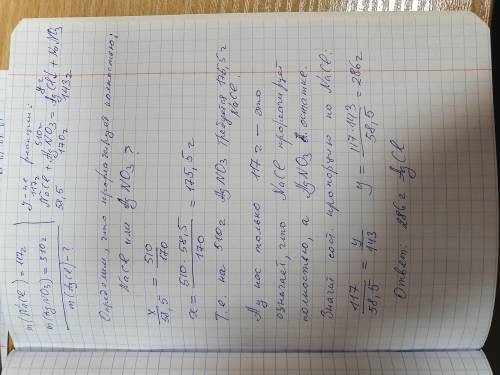 m(NaCl) = 117 г
m(AgNO3) = 510 г
m(AgCl) - ?
Ур-ие реакции:
117г 510г y г
NaCl + AgNO3 = AgCl + NaNO3
58,5 170г 143г
Определим, что прореагирует полностью:
NaCl или AgNO3?
x/58,5 = 510/170
x = 510·58,5/170 = 175,5 г
Т.е. на 510г AgNO3 требуется 175,5г
NaCl.
А у нас только 117г - это
означает, что NaCl прореагирует
полностью, а AgNO3 в остатке.
Значит сост. пропорцию по NaCl:
117/58,5 = y/143 y = 117·143/58,5 = 286г
Ответ: 286г AgCl